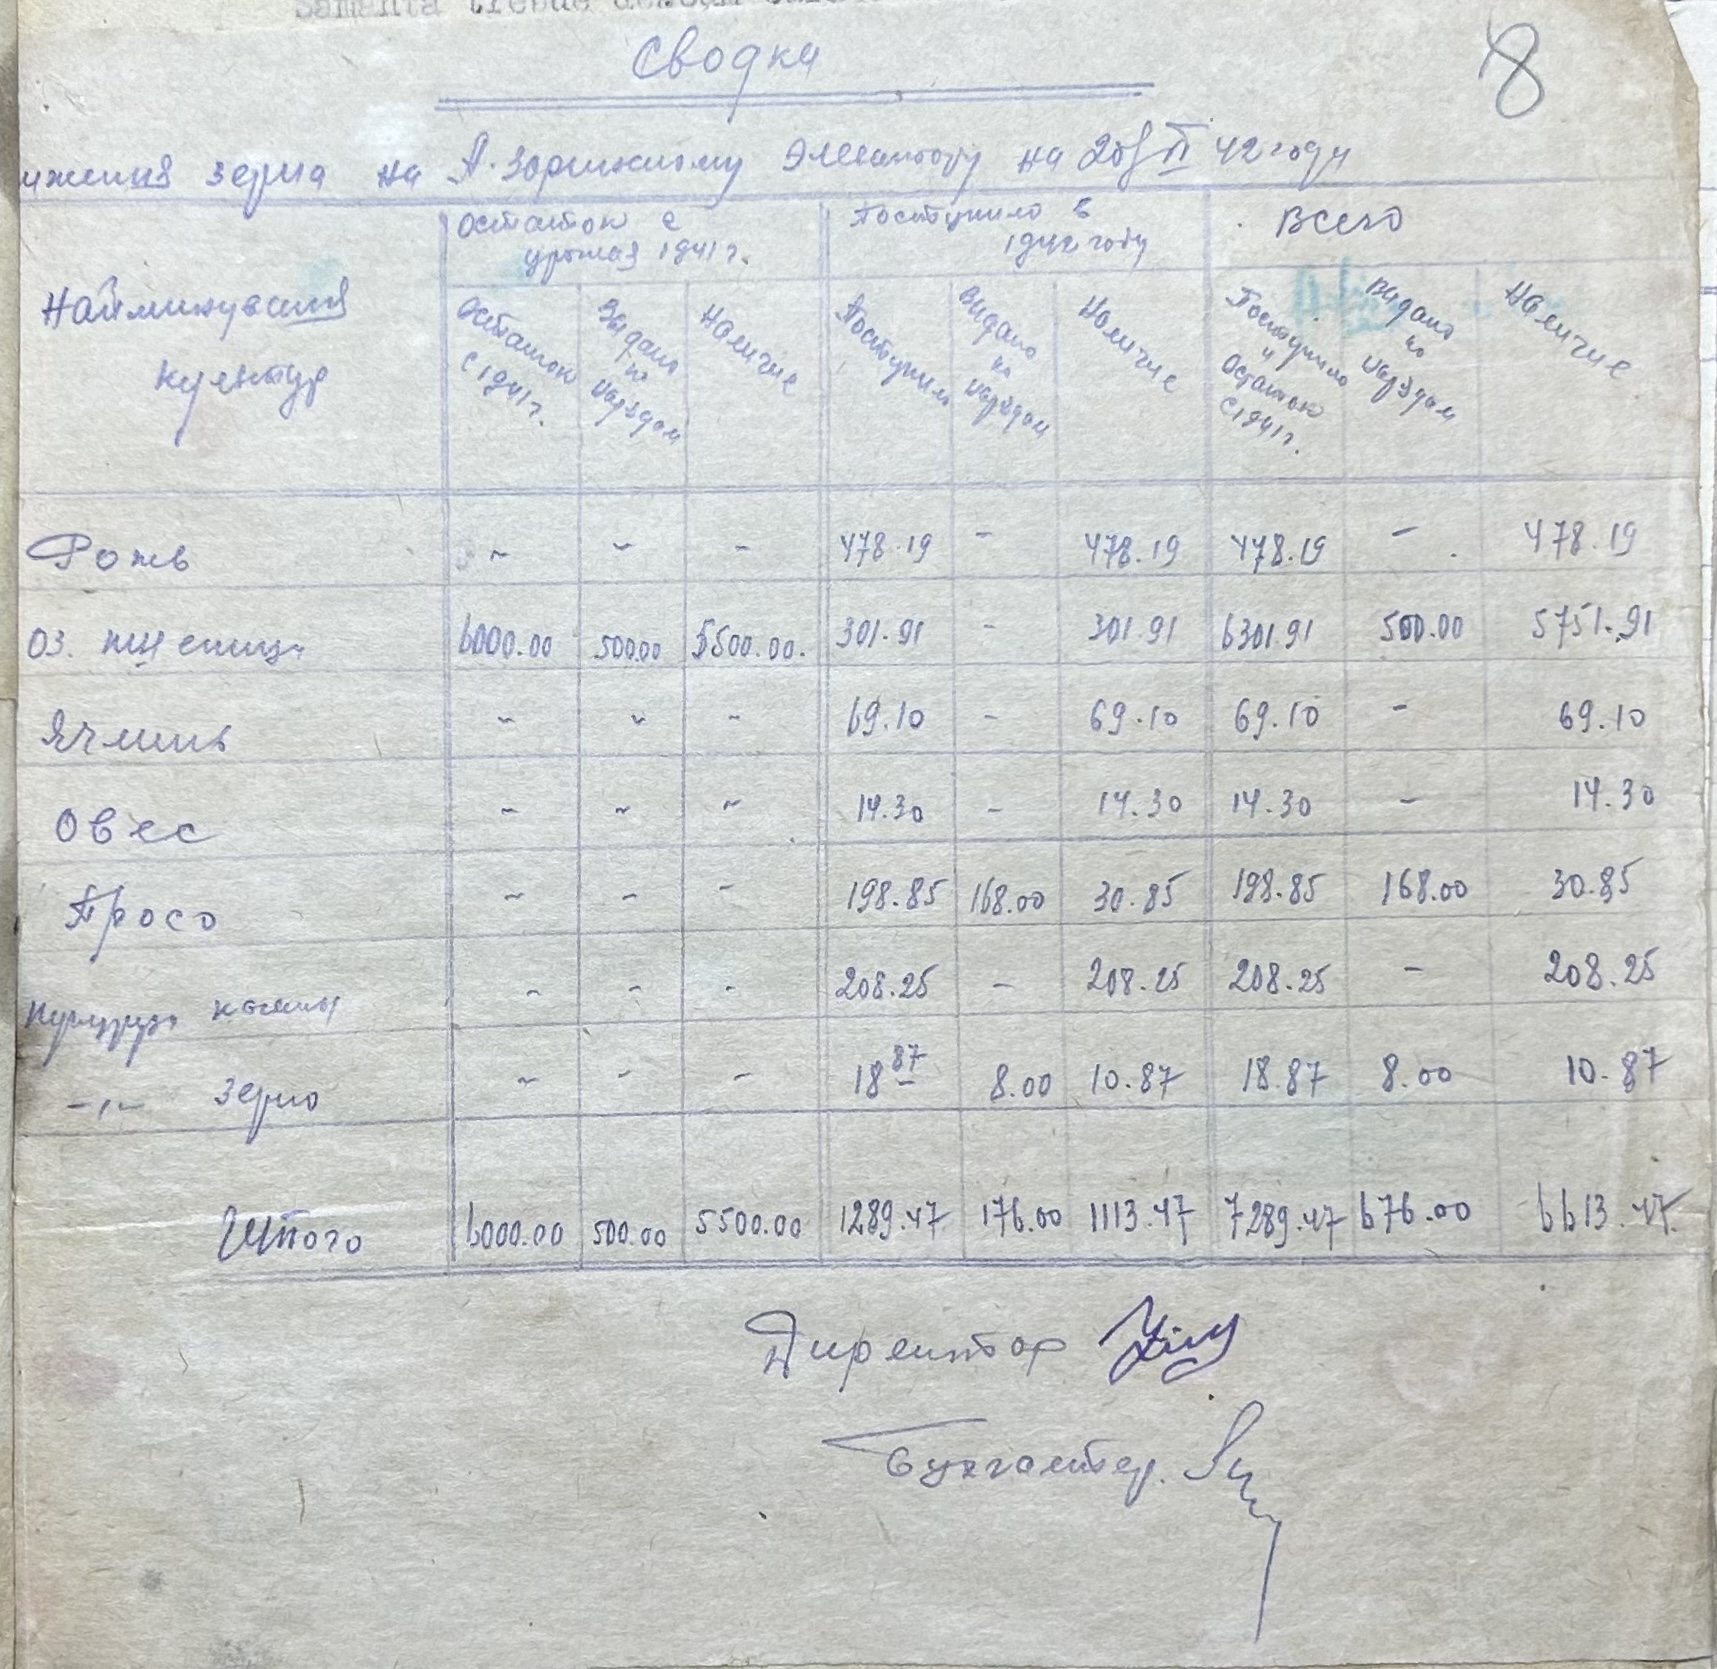 Сводка
8
ижения зерна на А. Элеватору на 20/II 42 году
Найминувания культур
Остаток с урожая 1941 г.
Поступило в 1942 году
Всего
Остаток с 1941 г.
Выдано по нарядам
Наличие
Поступило
Выдано по нарядам
Наличие
Поступило и Остаток с 1941 г.
Выдано по нарядам
Наличие
Рожь ~ ~ - 478.19 - 478.19 478.19 - 478.19
Оз. пшеница 6000.00 500.00 5500.00. 301.91 - 301.91 6301.91 500.00 5751.91
Ячминь ~ ~ - 69.10 - 69.10 69.10 - 69.10
Овес ~ ~ ~ 14.30 - 14.30 14.30 - 14.30
Просо ~ - - 198.85 168.00 30.85 198.85 168.00 30.85
Кукуруза - - - 208.25 - 208.25 208.25 - 208.25
-"- Зерно ~ - - 18 87 8.00 10.87 18.87 8.00 10.87
Итого 6000.00 500.00 5500.00 1289.47 176.00 1113.47 7289.47 676.00 6613.47
Директор
Бухгалтер.